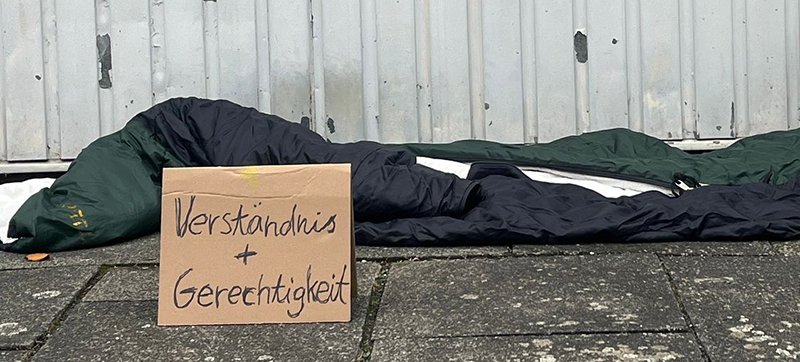 Verständnis
+
Gerechtigkeit